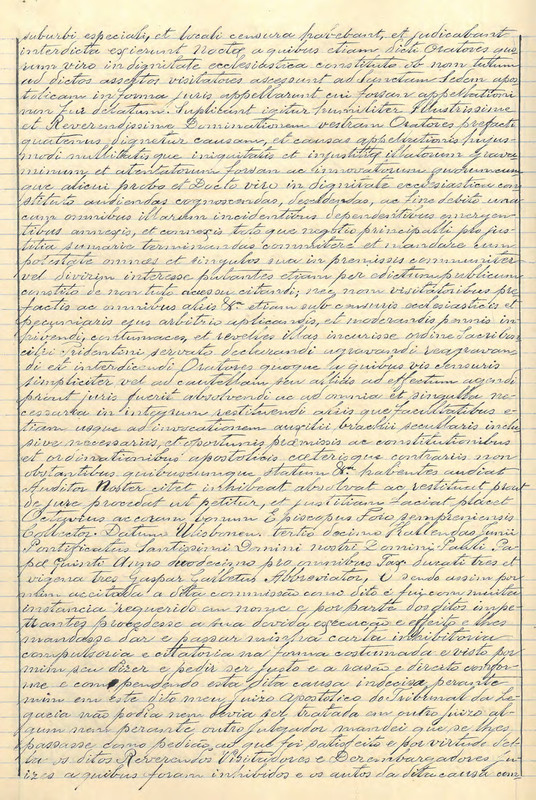 suburbi especiali, et locali censura habebant, et judicabant
interdicta exierunt Nocte, a quibus etiam dicti Oratores quo
rum viro in dignitate ecclesiastica constituto ob non tutum
ad dictos assertos visitatores accessunt ad Sanctam Sedem apos
tolicam in forma juris appellarunt cui forsan appellationi
non fur delatum. Suplicant igitur humiliter Illustrissime
et Reverendissime Dominationem vestram Oratores prefacti
quatenus dignetur causam, et causas appellationis hujus
modi nullitatis que iniquitatis et injustitie illatorum grava
minum et atentatorum forsan ac innovatorum quorumcum
que alicui probo et Docto viro in dignitate ecclesiastica con
stituto audiendas cognoscendas, decidendas, ac fine debito una
cum omnibus illarum incidentibus dependentibus emergen
tibus annexis, et connexis toto que negotio principalli pro jus
titia sumarie terminandas commitere et mandare cum
potestate omnes et singulos sua in premissis communiter
vel divisim interesse putantes etiam per edictum publicum
constito de non tuto acessu citandi; nec non visitatoribus pre
factis ac omnibus aliis &ª etiam sub censuris ecclesiasticis et
pecuniaris ejus arbitrio aplicandis, et moderandis pennis in
hivendi, contumaces, et reveles illas incurisse ordine Sacri Con
cilii Tridentini servato declarandi agravandi reagravan
di et interdicendi Oratores quoque a quibus vis censuris
simpliciter vel ad cautellam seu alias ad effectum agendi
prout juris fuerit absolvendi ac ad omnia et singulla ne
cessaria in integrum restituendi aliis que facultatibus e
tiam usque ad invocationem auxilii brachii secullaris inclu
sive necessariis, et oportunis premissis ac constitutionibus
et ordinationibus apostolicis ceteris que contrariis non
obstantibus quibuscumque statum &ª habentes audiat
Auditor Noster citet inhibeat absolvat ac restituet prout
de jure procedat ut petitur, et justitiam faciat placet
Octavius accoram, bonum Episcopus Foro sempreniensis
Colector Datum Ulisbonem tertio decimo Kallendas junii
Pontificatus Santissimi Domini nostri Domini Paulli Pa
pe Quinti Anno duodecimo pro omnibus Jax ducati tres et
vigena tres Gaspar Abbreviator, E sendo assim por
mim aceitada a dita commissão como dito é fui com muita
instancia requerido em nome e por parte dos ditos impe
trantes procedesse a sua devida execução e effeito e lhes
mandasse dar e passar minha carta inhibitoria
compulsoria e citatoria na forma costumada e visto por
mim seu dizer e pedir ser justo e a rasão e direito confor
me e como pendendo esta dita causa indecisa perante
mim em este dito meu juizo Apostolico do Tribunal da Le
gacia não podia nem devia ser tratada em outro juizo al
gum nem perante outro julgador mandei que se lhes
passasse como pedião, ao que foi satisfeito e por virtude del
la os ditos Reverendos Visitadores e Dezembargadores ju
izes a quibus foram inhibidos e os autos da dita causa com